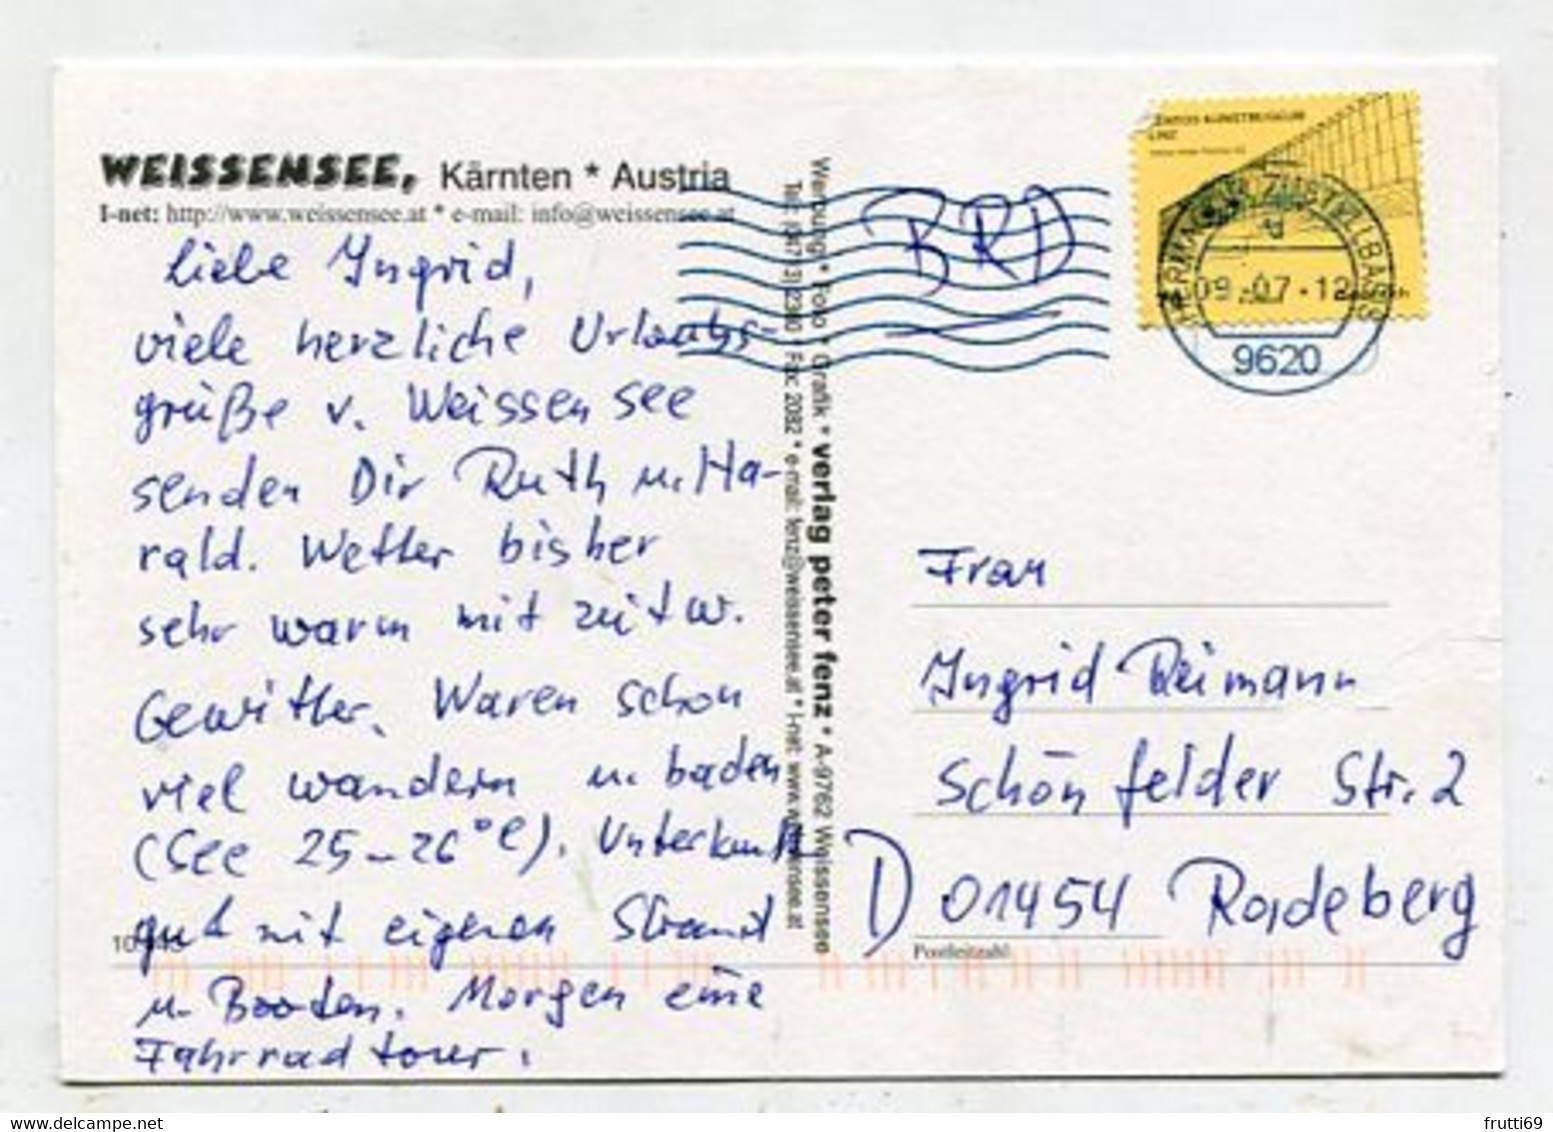 WEISSENSEE, Kärnten * Austria
I-net: http://www.weissensee.at * e-mail: info@weissensee.at
Liebe Ingrid,
viele herzliche Urlaubs-
grüße v. Weissensee
senden Dir Ruth u. Ha-
rald. Wetter bisher
sehr warm mit zeitw.
Gewitter. Waren schon
viel wandern u. baden
(See 25-26°C). Unterkunft
gut mit eigenen Strand
u. Booten. Morgen eine
Fahrradtour.
Werbung * Foto * Grafik * verlag peter fenz * A-9762 Weissensee
Fax: 2082 * e-mail: fenz@weissensee.at * I-net: www.weissensee.at
BRD
KUNSTMUSEUM
LINZ
09.07.12
9620
Frau
Ingrid Reimann
Schönfelder Str. 2
D 01454 Radeberg
Postleitzahl
frutti69